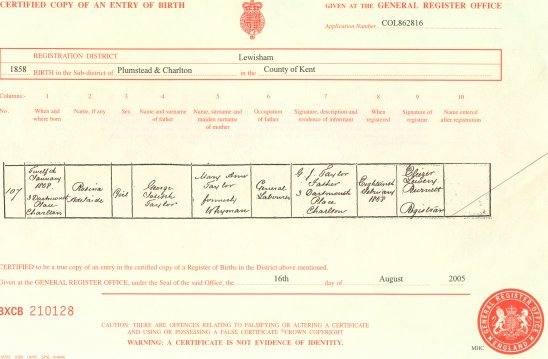 CERTIFIED COPY OF AN ENTRY OF BIRTH
GIVEN AT THE GENERAL REGISTER OFFICE
Application Number COL862816
REGISTRATION DISTRICT Lewisham
1858 BIRTH in the Sub-district of Plumstead & Charlton in the County of Kent
Columns:- 1 2 3 4 5 6 7 8 9 10
No. When and where born Name, if any Sex Name and surname of father Name, surname and maiden surname of mother Occupation of father Signature, description and residence of informant When registered Signature of registrar Name entered after registration
107 Twelfth January 1858 3 Dartmouth Place Charlton Rosina Adelaide Girl George Joseph Taylor Mary Ann Taylor formerly Whyman General Labourer G J Taylor Father 3 Dartmouth Place Charlton Eighteenth February 1858 Registrar
CERTIFIED to be a true copy of an entry in the certified copy of a Register of Births in the District above mentioned.
Given at the GENERAL REGISTER OFFICE, under the Seal of the said Office, the 16th day of August 2005
BXCB 210128
CAUTION: THERE ARE OFFENCES RELATING TO FALSIFYING OR ALTERING A CERTIFICATE
AND USING OR POSSESSING A FALSE CERTIFICATE ©CROWN COPYRIGHT
WARNING: A CERTIFICATE IS NOT EVIDENCE OF IDENTITY.
GENERAL REGISTER OFFICE
ENGLAND